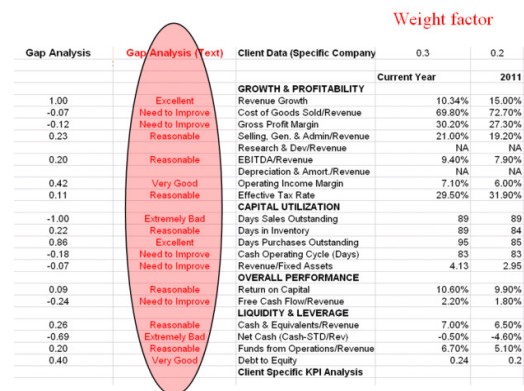 Weight factor
Gap Analysis Gap Analysis (Text) Client Data (Specific Company 0.3 0.2
Current Year 2011
GROWTH & PROFITABILITY
1.00 Excellent Revenue Growth 10.34% 15.00%
-0.07 Need to Improve Cost of Goods Sold/Revenue 69.80% 72.70%
-0.12 Need to Improve Gross Profit Margin 30.20% 27.30%
0.23 Reasonable Selling, Gen. & Admin/Revenue 21.00% 19.20%
Research & Dev/Revenue NA NA
0.20 Reasonable EBITDA/Revenue 9.40% 7.90%
Depreciation & Amort./Revenue NA NA
0.42 Very Good Operating Income Margin 7.10% 6.00%
0.11 Reasonable Effective Tax Rate 29.50% 31.90%
CAPITAL UTILIZATION
-1.00 Extremely Bad Days Sales Outstanding 89 89
0.22 Reasonable Days in Inventory 89 84
0.86 Excellent Days Purchases Outstanding 95 85
-0.18 Need to Improve Cash Operating Cycle (Days) 83 83
-0.07 Need to Improve Revenue/Fixed Assets 4.13 2.95
OVERALL PERFORMANCE
0.09 Reasonable Return on Capital 10.60% 9.90%
-0.24 Need to Improve Free Cash Flow/Revenue 2.20% 1.80%
LIQUIDITY & LEVERAGE
0.26 Reasonable Cash & Equivalents/Revenue 7.00% 6.50%
-0.69 Extremely Bad Net Cash (Cash-STD/Rev) -0.50% -4.60%
0.20 Reasonable Funds from Operations/Revenue 6.70% 5.10%
0.40 Very Good Debt to Equity 0.24 0.2
Client Specific KPI Analysis